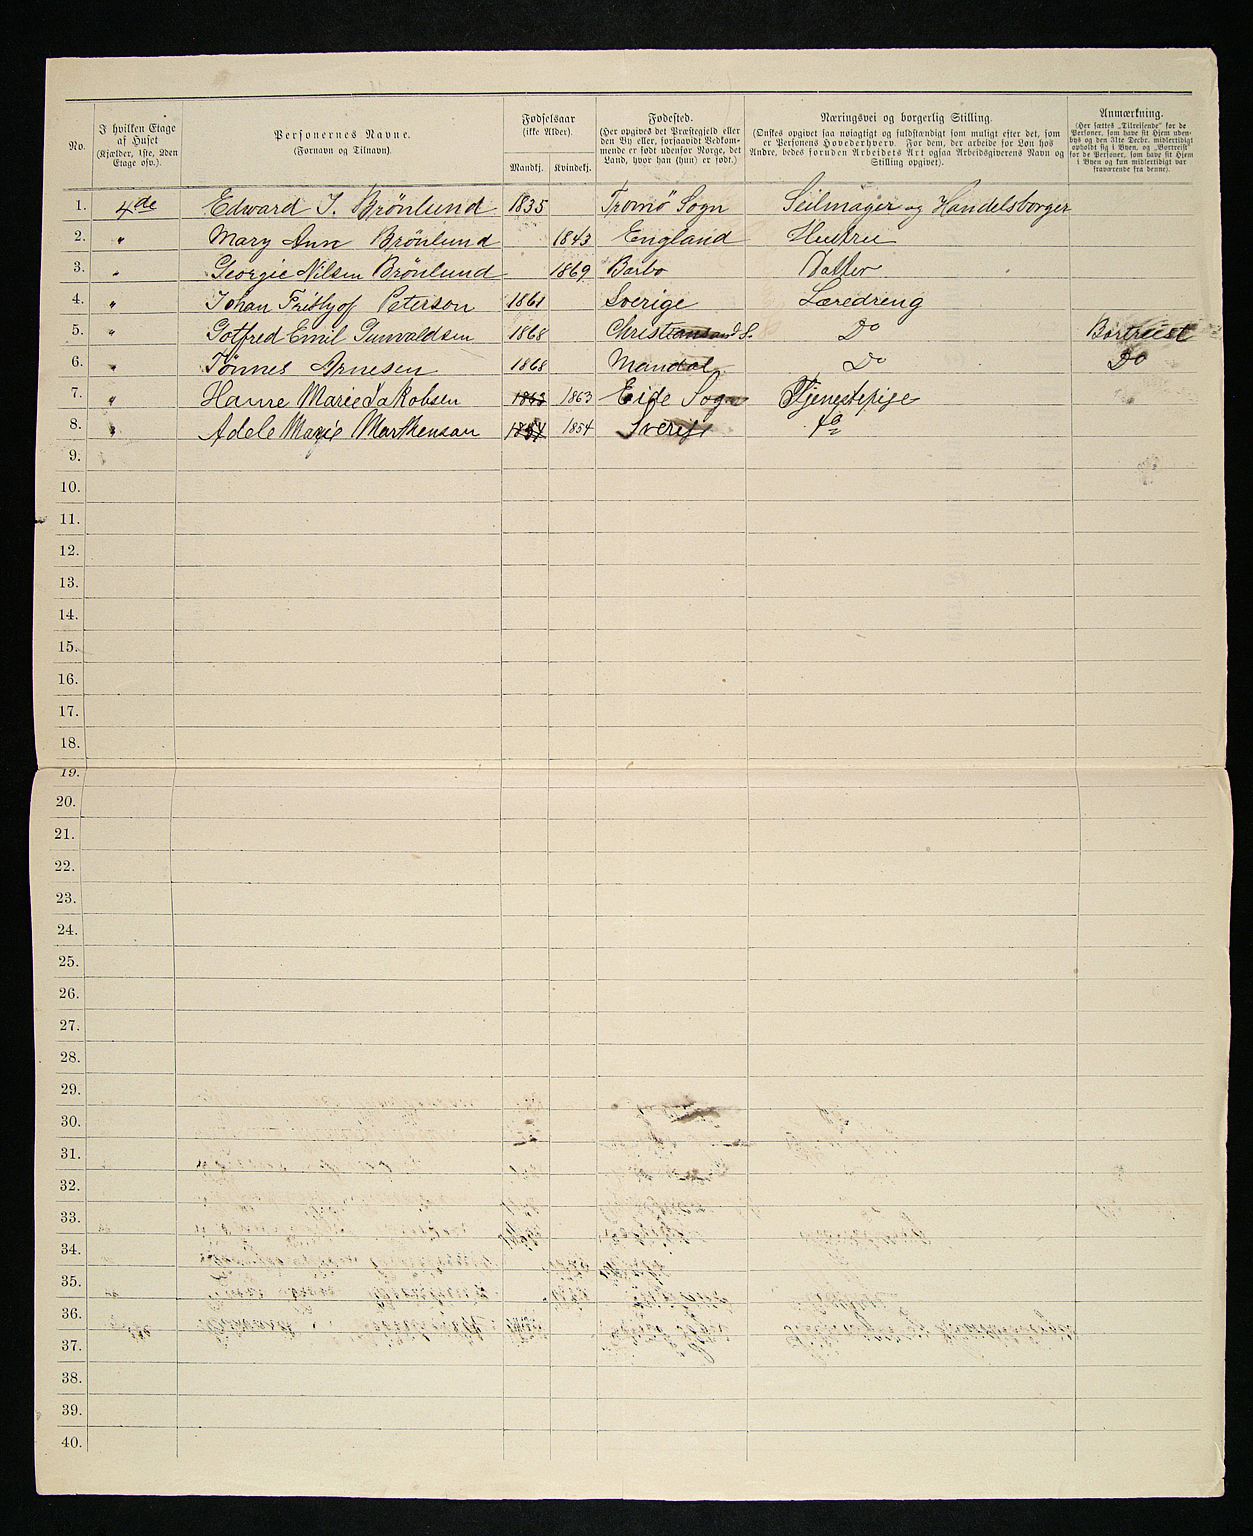 No.
I hvilken Etage af Huset (Kjælder, 1ste, 2den Etage osv.).
Personernes Navne. (Fornavn og Tilnavn).
Fødselsaar (ikke Alder).
Mandkj. Kvindekj.
Fødested. (Her opgives det Præstegjeld eller den By eller, forsaavidt Vedkommende er født udenfor Norge, det Land, hvor han (hun) er født.)
Næringsvei og borgerlig Stilling. (Ønskes opgivet saa nøiagtigt og fuldstændigt som muligt efter det, som er Personens Hovederhverv. For dem, der arbeide for Løn hos Andre, bedes foruden Arbeidets Art ogsaa Arbeidsgiverens Navn og Stilling opgivet).
Anmærkning. (Her sættes „Tilreisende" for de Personer, som have sit Hjem udenbys og den 31te Decbr. midlertidigt opholdt sig i Byen, og „Bortreist" for de Personer, som have sit Hjem i Byen og kun midlertidigt var fraværende fra denne).
1. 4de Edward I. Brönlund 1835 Tromö Sogn Seilmager og Handelsborger
2. " Mary Ann Brönlund 1843 England Hustru
3. " Georgie Nilsen Brönlund 1869 Barbo Datter
4. " Johan Frithjof Peterson 1861 Sverige Læredreng
5. " Gotfred Emil Gunvaldsen 1868 Christiansand S. Do Bortreist
6. " Tönnes Arnesen 1868 Mandal Do Do
7. " Hanne Marie Jakobsen 1863 1863 Eide Sogn Tjenestepige
8. " Adele Marie Marthensan 1854 1854 Sverige do
9.
10.
11.
12.
13.
14.
15.
16.
17.
18.
19.
20.
21.
22.
23.
24.
25.
26.
27.
28.
29.
30.
31.
32.
33.
34.
35.
36.
37.
38.
39.
40.